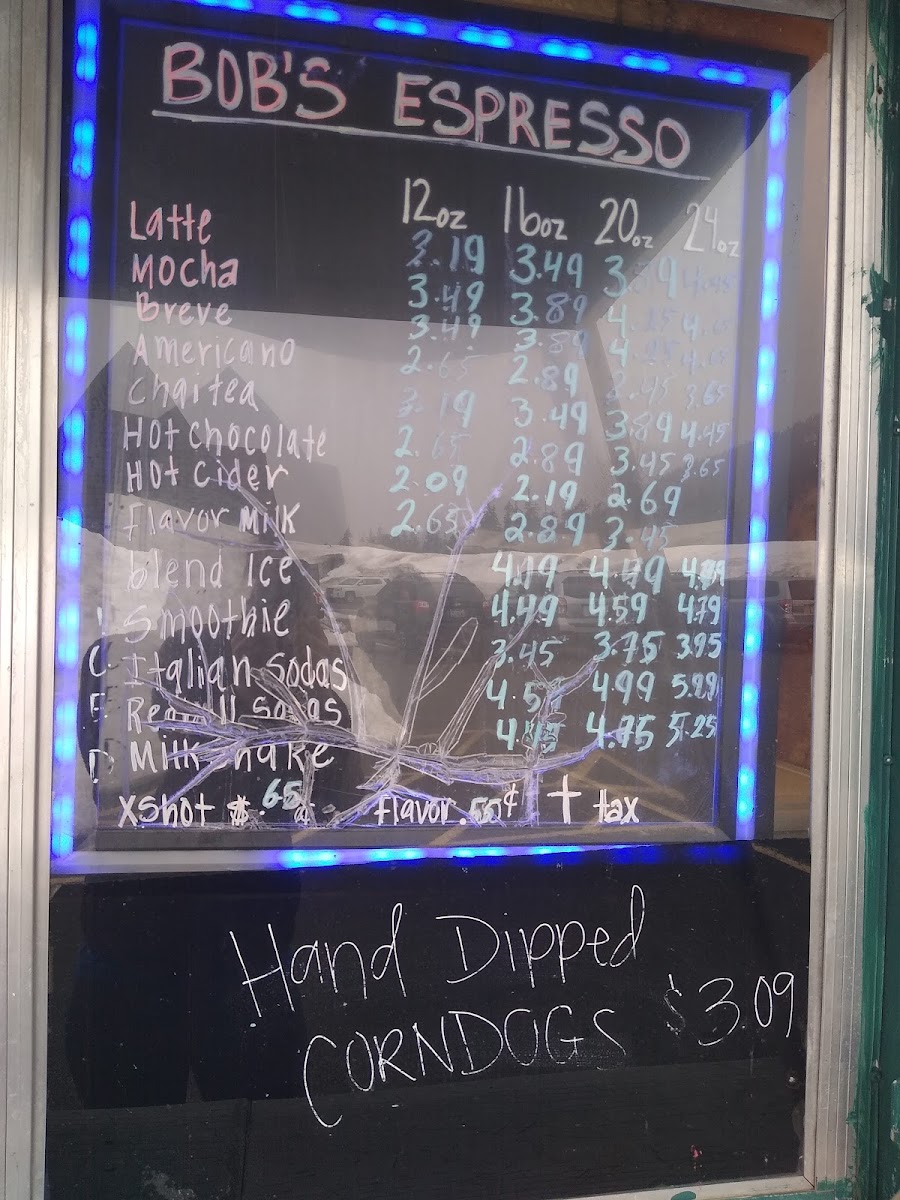 BOB'S ESPRESSO
12oz 16oz 20oz 24oz
Latte 3.19 3.49 3.89
Mocha 3.49 3.89 4.25
Breve 3.49 3.89 4.25
Americano 2.65 2.89 3.45 3.65
Chai tea 3.19 3.49 3.89 4.45
Hot chocolate 2.65 2.89 3.45 3.65
Hot cider 2.09 2.19 2.69
flavor Milk 2.65 2.89 3.45
blend Ice 4.19 4.49
Smoothie 4.49 4.59 4.79
Italian Sodas 3.45 3.75 3.95
4.99
4.75 5.25
xshot $.65 flavor .55¢ + tax
Hand Dipped
CORNDOGS $3.09